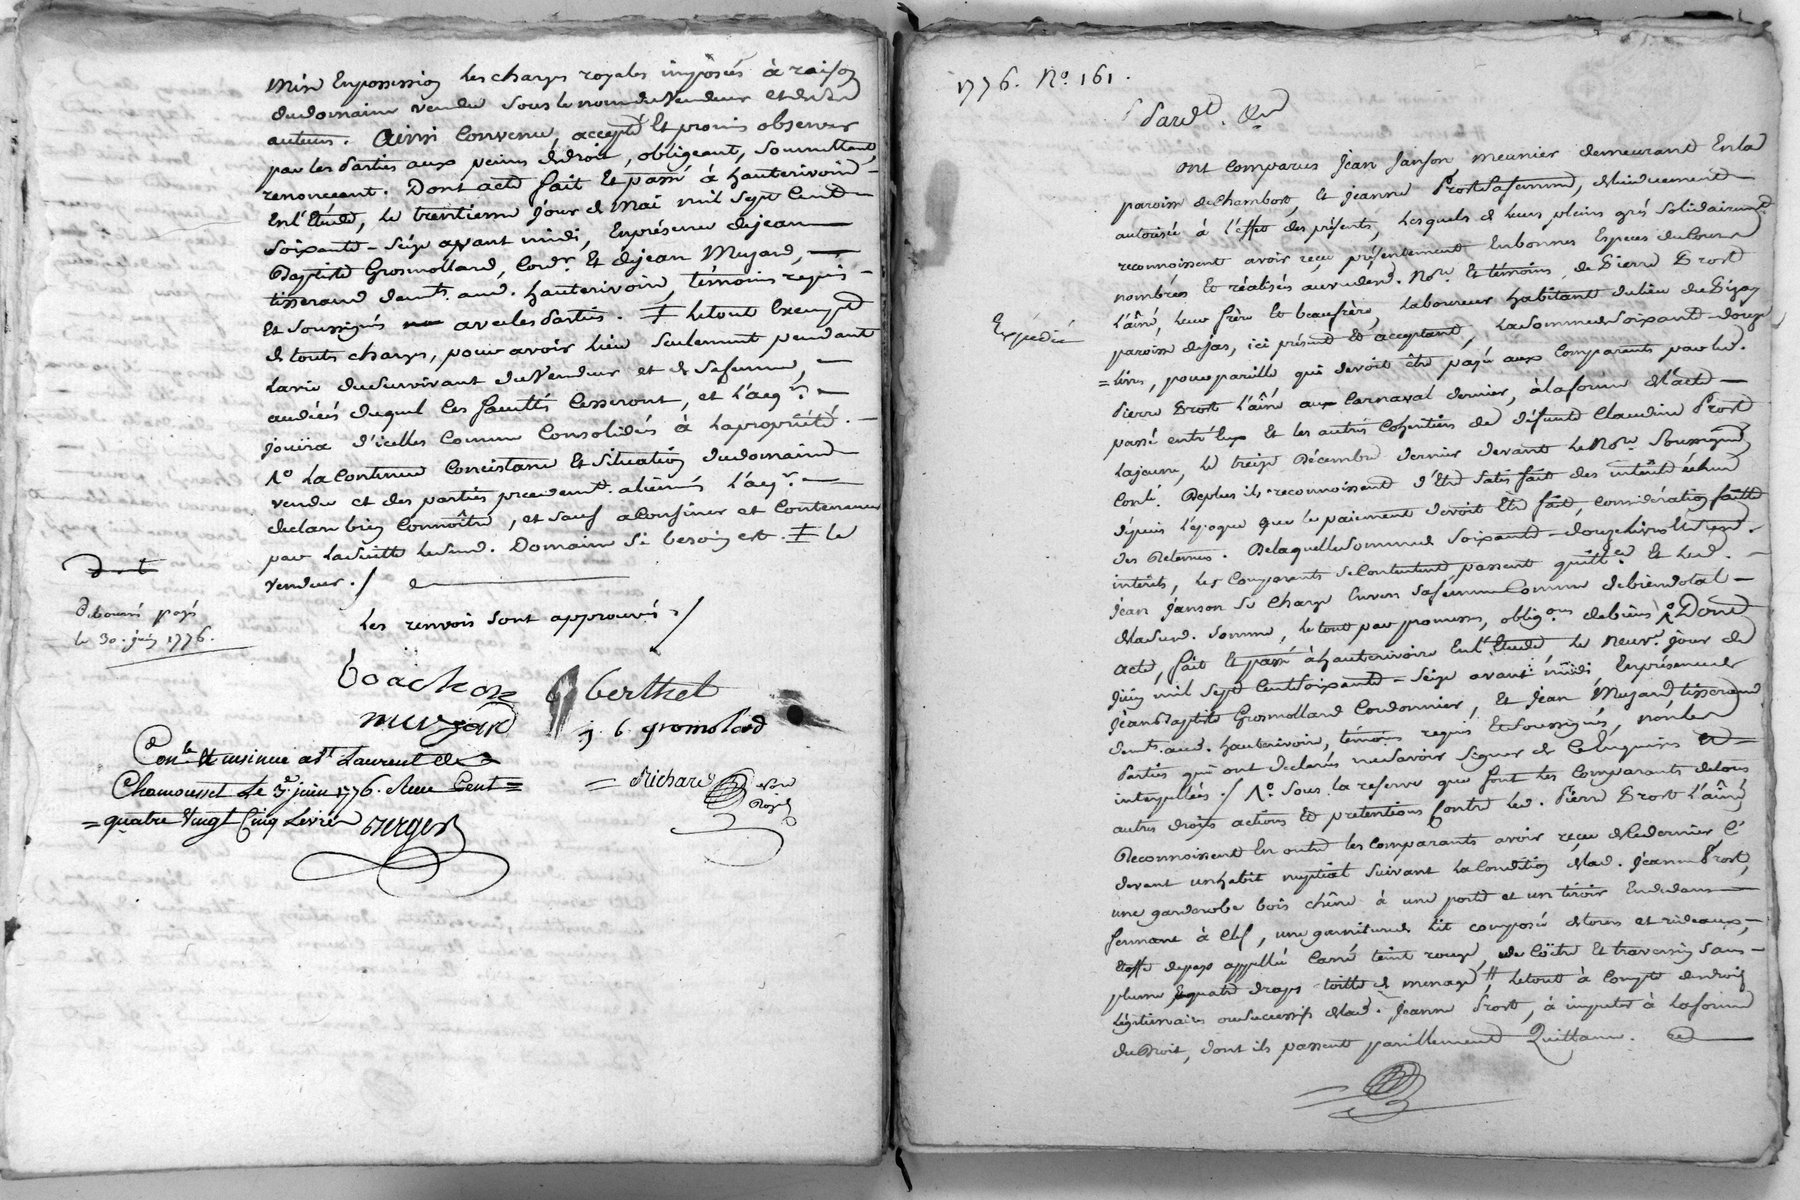 mis en possession les charges royales imposées à raison
du domaine vendu sous le nom du Vendeur et de ses
auteurs. Ainsi Convenu, accepté Et promis observer
par les Parties aux peines de droit, obligeant, soumettant,
renonceant. Dont acte fait Et passé à hauterivoire
En l'Etude, le trentieme jour de Mai mil sept Cent
soixante-seize avant midi, En présence de jean
Baptiste Grosmolland, Cord.r Et de jean Muzard,
tisserand dem.ts aud. hauterivoire, témoins requis
Et soussignés avec les Parties. ‡ le tout Exempt
de touts charges, pour avoir lieu seulement pendant
la vie du survivant du Vendeur et de sa femme,
au décés duquel les facultés Cesseront, et l'acq.r
jouira d'icelles Comme Consolidés à la propriété.
1º La Continue Concistance Et situation du domaine
vendu et des parties precedem.t aliénés l'acq.r
declare bien Connoître, et sauf a Confiner et Contenance
par la suitte lesusd. Domaine si besoin est. ‡ le
Vendeur ./
Les renvois sont approuvés ./
Dt
débourrés payés
le 30. juin 1776.
boachon berthet
muzard j b gromolard
Con.lé & insinué a St Laurent de
Chamousset Le 3.e juin 1776. Reçu Cent
quatre Vingt Cinq Livres
Berger
Richard No.re Royal
1776. Nº 161.
Pardt. &a
Expédié
Ont comparus Jean Janson meunier demeurant En la
paroisse de Chambost, Et Jeanne Prost sa femme, de lui duement
autorisée à l'effet des présents, lesquels de leurs pleins grés solidairement
reconnoissent avoir reçu présentement En bonnes Especes du Cours
nombrées Et réalisés au vu desd. No.re Et témoins, de Pierre Prost
l'aîné, leur frère Et beaufrère, laboureur habitant du lieu du Pizay
paroisse de jas, ici présent Et acceptant, la somme de soixante-douze
livres, pour pareille qui devoit être payée aux Comparants par led.
Pierre Prost l'aîné au Carnaval dernier, à la forme de l'acte
passé entr'Eux Et les autres Cohéritiers de défunte Claudine Prost
la jeune, le treize Décembre dernier devant le No.re soussigné,
Conlé. De plus ils reconnoissent d'être satisfait des intérêts échus
depuis l'époque que le paiement devoit Etre fait, considération faitte
des Retenues. De laquelle somme de soixante-douze livres Et desd.
intérêts, les Comparants se Contentent passent quitt.ce Et led.
Jean Janson se Charge Envers sa femme Comme de bien dotal
de lasusd. somme, le tout par promesses, oblig.ons de biens 1º Dont
acte, fait Et passé à hauterivoire En l'Etude, le neuv.e jour de
Juin mil sept Cent soixante-seize avant midi En présence de
Jean Baptiste Grosmolland Cordonnier, Et Jean Muzard tisserand
dem.ts aud. hauterivoire, témoins requis Et soussignés, non les
Parties qui ont déclarés ne savoir signer de Ce Enquises Et
interpellées ./ 1º Sous la reserve que font les Comparants de tous
autres droits actions Et prétentions Contre led. Pierre Prost l'aîné
Reconnoissent En outre les Comparants avoir reçu de ce dernier, ci
devant un habit nuptial suivant la Condition de lad. Jeanne Prost,
une garderobe bois chêne à une porte et un tiroir En dedans
fermant à clef, une garniture de lit composé de tours et rideaux,
Etoffe de pays appellée Carré teint rouge, de Coître Et traversin sans
plume Et quatre draps toille de menage, le tout à Compte des droits
légitimaires ou successifs de lad. Jeanne Prost, à imputer à la forme
du Droit, dont ils passent pareillement Quittance.